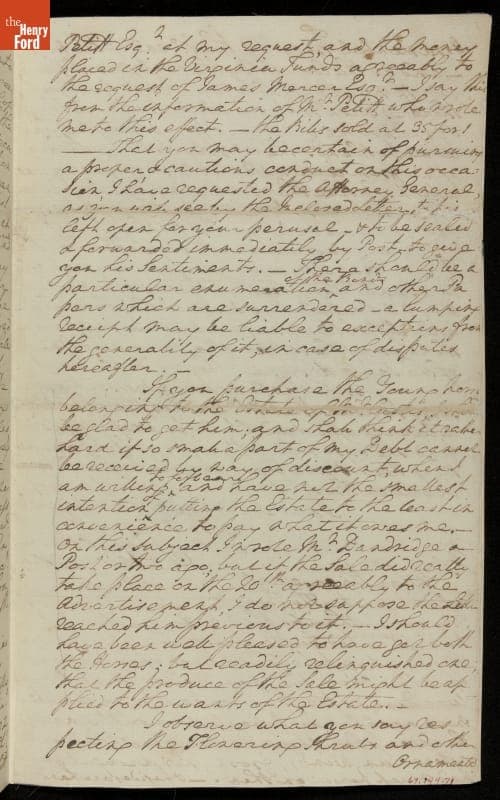 the
Henry
Ford
Petitt Esqr. at my request, and the money
placed in the Virginia Funds agreeably to
the request of James Mercer Esqr. — I say this
from the information of Mr. Petitt who wrote
me to this effect. — the Bills sold at 35 for 1
— That you may be certain of pursuing
a proper & cautious conduct on this occa-
sion, I have requested the Attorney General,
as you will see by the inclosed letter, wch. is
left open for your perusal — & to be sealed
& forwarded immediately by Post, to give
you his sentiments. — There should be a
particular enumeration of the Bonds and other Pa-
pers which are surrendered — a lumping
receipt may be liable to exceptions from
the generality of it, in case of disputes
hereafter. —
If you purchase the Young horse
belonging to the Estate
be glad to get him, and shall think it rather
hard if so small a part of my Debt cannot
be received by way of discount, when I
am willing to forbear and have not the smallest
intention of putting the Estate to the least in-
convenience to pay what it owes me. —
On this subject I wrote Mr. Dandridge a
Post or two ago, but if the Sale did really
take place on the 20th. agreeably to the
Advertisement, I do not suppose the letter
reached him previous to it. — I should
have been well pleased to have got both
the Horses; but readily relinquished one,
that the produce of the Sale might be ap-
plied to the wants of the Estate. —
I observe what you say res-
pecting the Flowering Shrubs and other
Ornamental